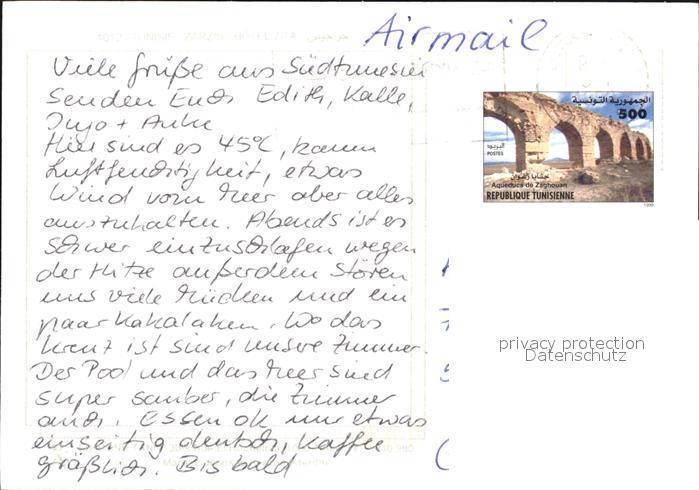 Airmail
Viele Grüße aus Südtunesien
senden Euch Edith, Kalle,
Ingo + Anke
Hier sind es 45°C, kaum
Luftfeuchtigkeit, etwas
Wind vom Meer aber alles
auszuhalten. Abends ist es
schwer einzuschlafen wegen
der Hitze außerdem stören
uns viele Mücken und ein
paar Kakalaken. Wo das
Kreuz ist sind unsere Zimmer.
Der Pool und das Meer sind
super sauber, die Zimmer
auch. Essen ok nur etwas
einseitig deutsch, Kaffee
gräßlich. Bis bald
الجمهورية التونسية
500
البريد
POSTES
حنايا زغوان
Aqueducs de Zaghouan
REPUBLIQUE TUNISIENNE
privacy protection
Datenschutz